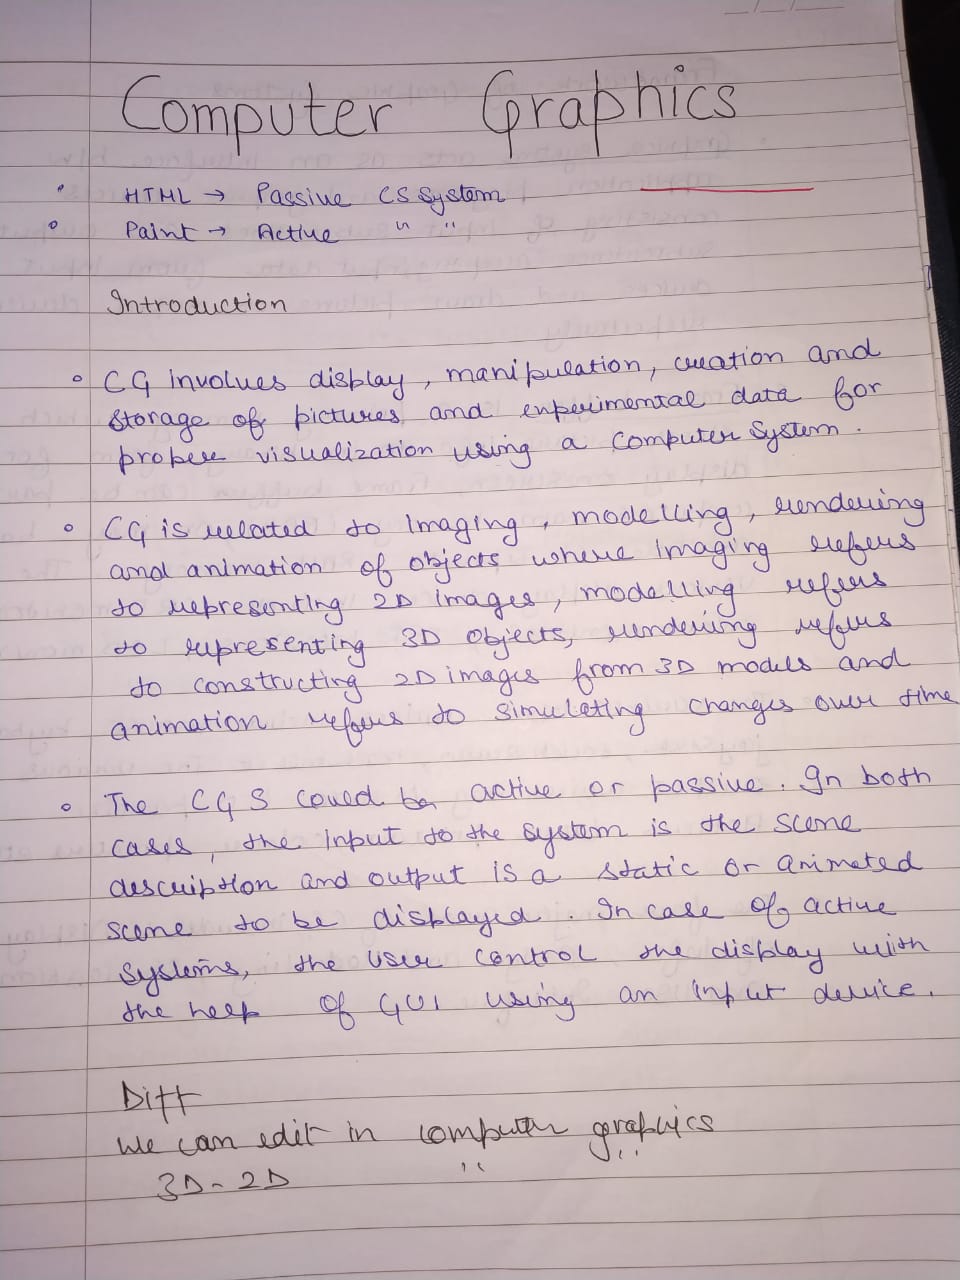 Computer Graphics
• HTML → Passive CS System
• Paint → Active " "
Introduction
• CG involves display, manipulation, creation and
storage of pictures and experimental data for
proper visualization using a Computer System.
• CG is related to Imaging, modelling, rendering
and animation of objects where imaging refers
to representing 2D images, modelling refers
to representing 3D Objects, rendering refers
to constructing 2D images from 3D models and
animation refers to simulating changes over time
• The CGS could be active or passive. In both
cases, the input to the system is the scene
description and output is a static or animated
scene to be displayed. In case of active
systems, the user control the display with
the help of GUI using an input device.
Diff
We can edit in computer graphics
3D - 2D " "